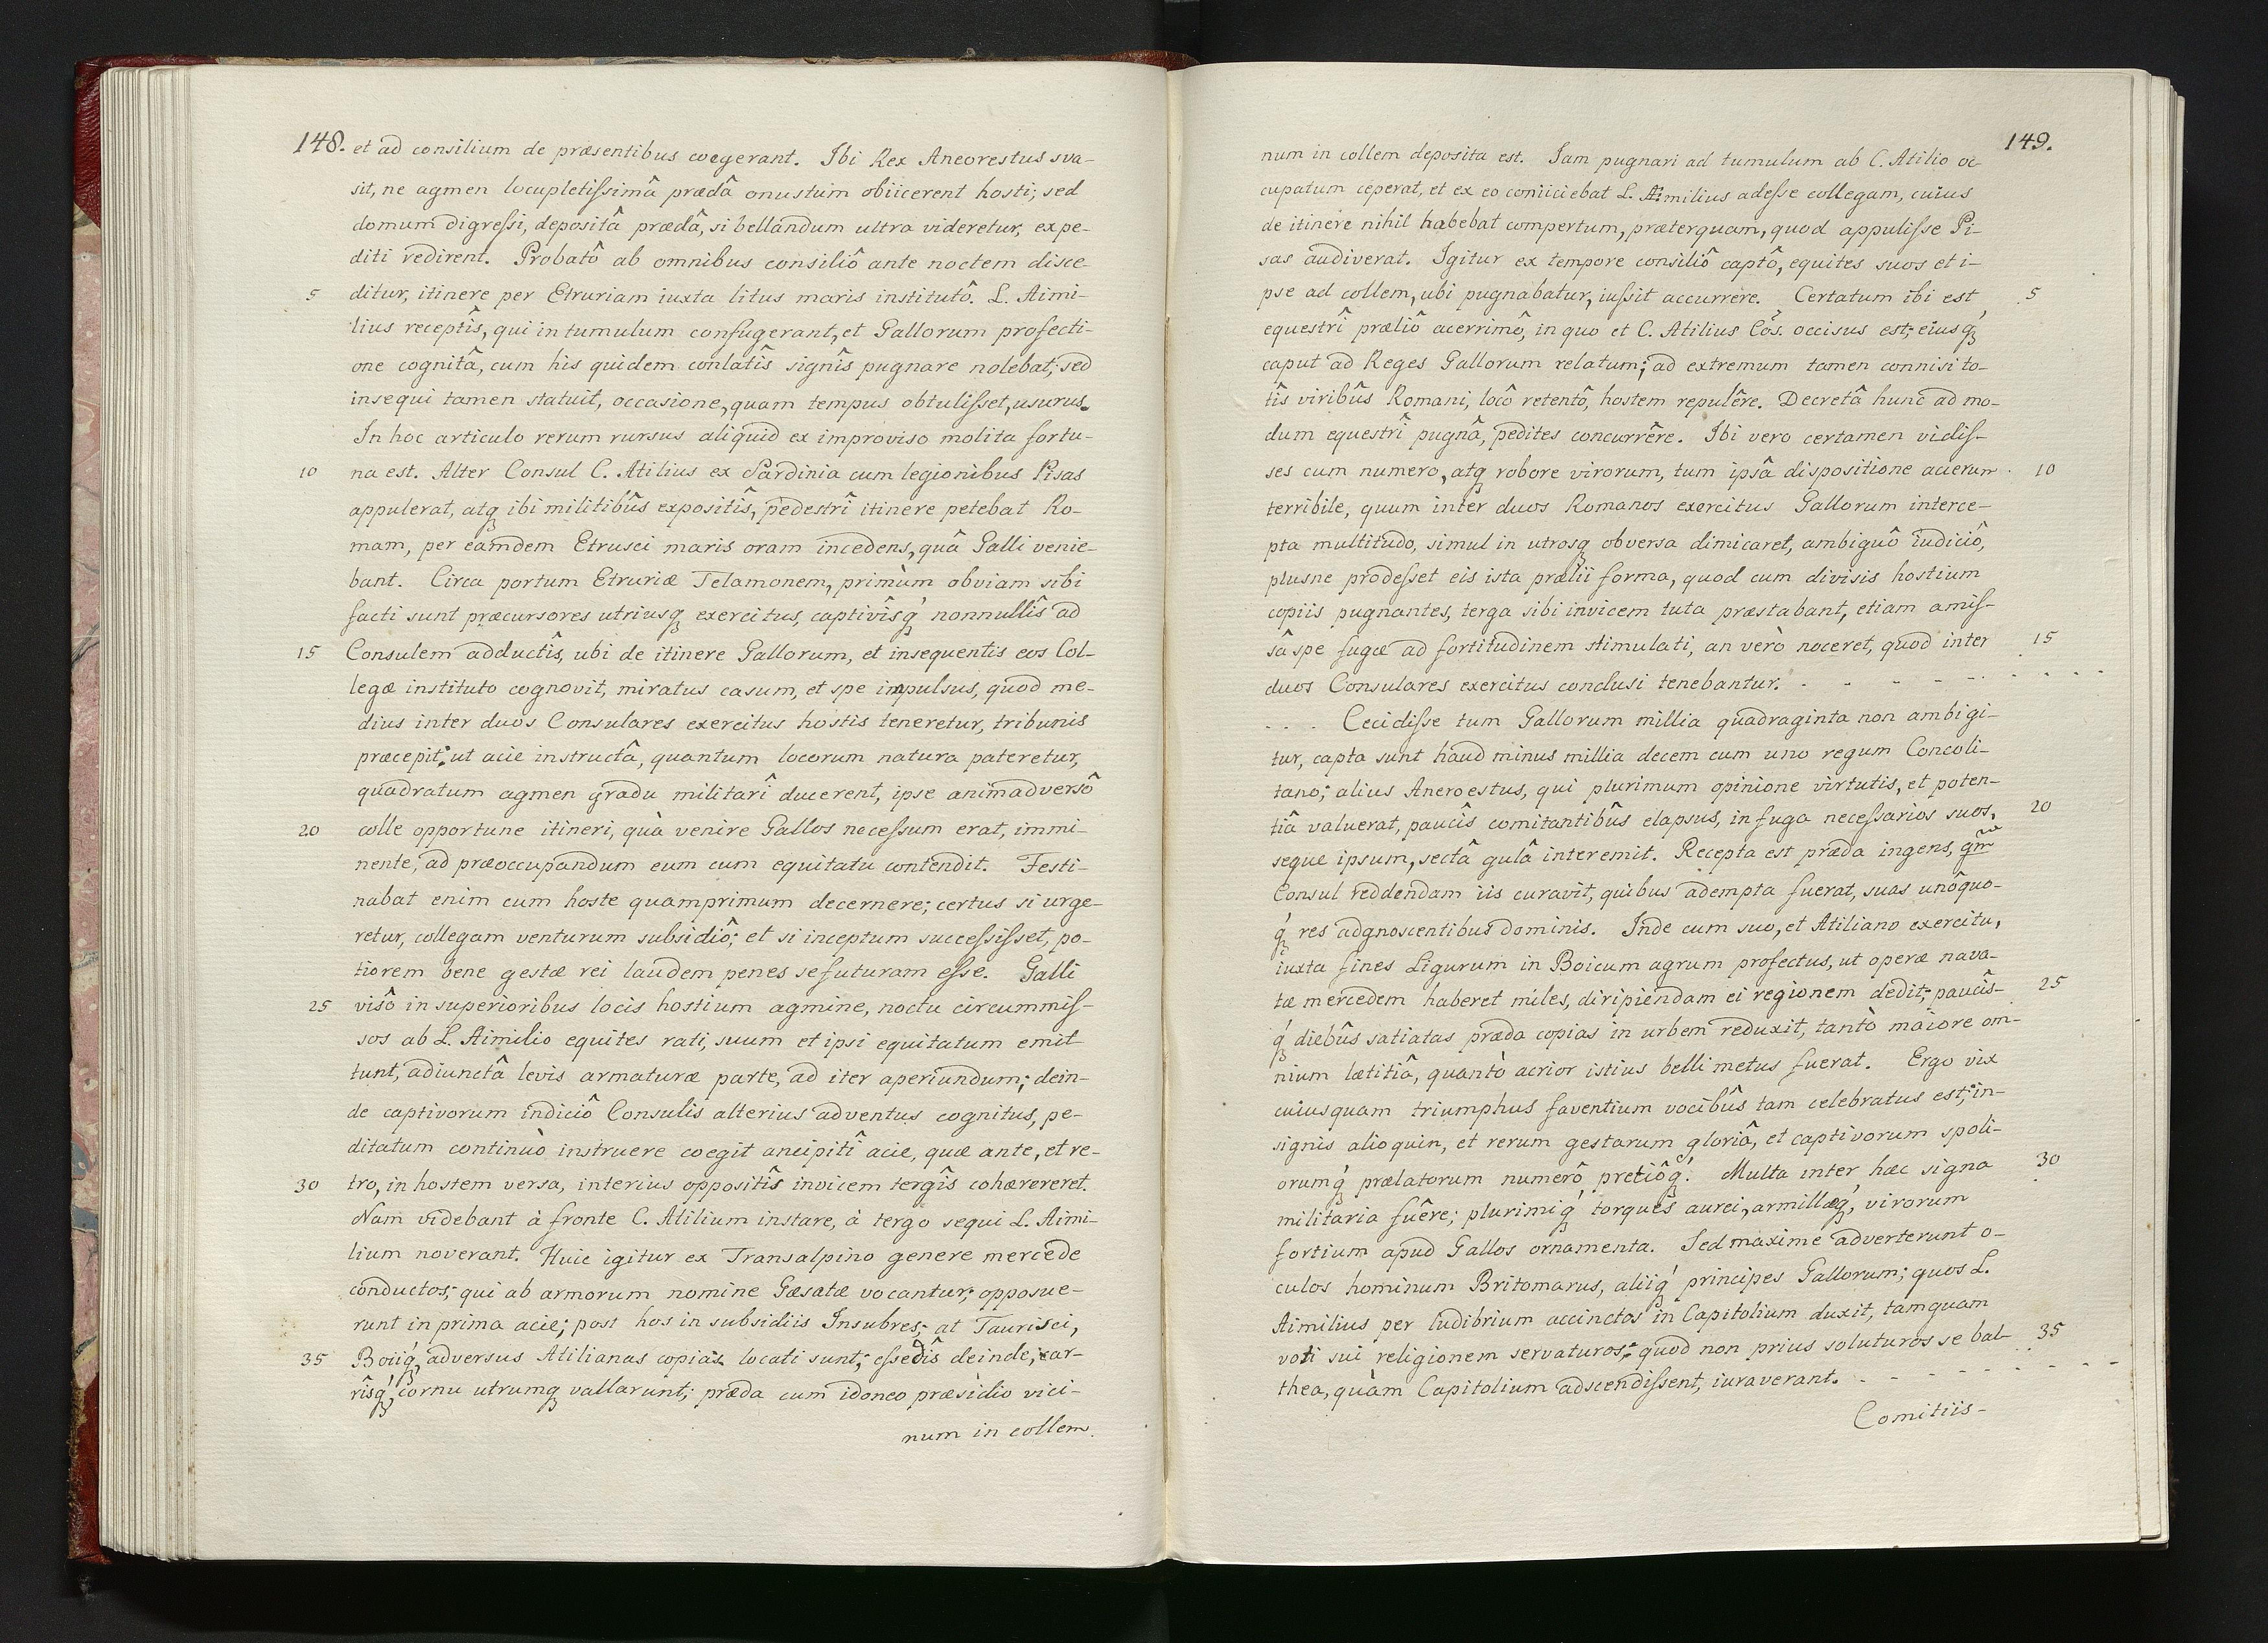 148. et ad consilium de præsentibus coegerant. Ibi Rex Aneorestus sva-
sit, ne agmen locupletiſsimâ prædâ onustum obiicerent hosti; sed
domum digreſsi, depositâ prædâ, si bellandum ultra videretur, expe-
diti redirent. Probatô ab omnibus consiliô ante noctem disce-
5 ditur, itinere per Etruriam iuxta litus maris institutô. L. Aimi-
lius receptîs, qui in tumulum confugerant, et Gallorum profecti-
one cognitâ, cum his quidem conlatîs signîs pugnare nolebat; sed
insequi tamen statuit, occasione, quam tempus obtuliſset, usurus.
In hoc articulo rerum rursus aliquid ex improviso molita fortu-
10 na est. Alter Consul C. Atilius ex Sardinia cum legionibus Pisas
appulerat, atq ibi militibûs expositîs, pedestrî itinere petebat Ro-
mam, per eamdem Etrusci maris oram incedens, quâ Galli venie-
bant. Circa portum Etruriæ Telamonem, primùm obviam sibi
facti sunt præcursores utriusq exercitus, captivîsq́ nonnullîs ad
15 Consulem adductîs, ubi de itinere Gallorum, et insequentis eos Col-
legæ instituto cognovit, miratus casum, et spe impulsus, quod me-
dius inter duos Consulares exercitus hostis teneretur, tribunis
præcepit; ut acie instructâ, quantum locorum natura pateretur,
quadratum agmen gradu militarî ducerent, ipse animadversô
20 colle opportune itineri, quà venire Gallos neceſsum erat, immi-
nente, ad præoccupandum eum cum equitatu contendit. Festi-
nabat enim cum hoste quamprimum decernere; certus si urge-
retur, collegam venturum subsidiô; et si inceptum succeſsiſset, po-
tiorem bene gestæ rei laudem penes se futuram eſse. Galli
25 visô in superioribus locis hostium agmine, noctu circummiſ-
sos ab L. Aimilio equites rati, suum et ipsi equitatum emit
tunt, adiunctâ levis armaturæ parte, ad iter aperiundum; dein-
de captivorum indiciô Consulis alterius adventus cognitus, pe-
ditatum continuò instruere coegit ancipitî acie, quæ ante, et re-
30 tro, in hostem versa, interius oppositîs invicem tergîs cohærereret.
Nam videbant à fronte C. Atilium instare, à tergo sequi L. Aimi-
lium noverant. Huic igitur ex Transalpino genere mercede
conductos; qui ab armorum nomine Gæsatæ vocantur; opposue-
runt in prima acie; post hos in subsidiis Insubres; at Taurisci,
35 Boiiq́, adversus Atilianas copias locati sunt; eſsedîs deinde, car-
rîsq́, cornu utrumq vallarunt; præda cum idoneo præsidio vici-
num in collem.
149.
num in collem deposita est. Iam pugnari ad tumulum ab C. Atilio oc-
cupatum ceperat, et ex eo coniiciebat L. Aimilius adeſse collegam, cuius
de itinere nihil habebat compertum, præterquam, quod appuliſse Pi-
sas audiverat. Igitur ex tempore consiliô captô, equites suos et i-
pse ad collem, ubi pugnabatur, iuſsit accurrere. Certatum ibi est 5
equestrî præliô acerrimô, in quo et C. Atilius Cos. occisus est; eiusq́
caput ad Reges Gallorum relatum; ad extremum tamen connisi to-
tîs viribûs Romani, locô retentô, hostem repulêre. Decretâ hunc ad mo-
dum equestrî pugnâ, pedites concurrêre. Ibi vero certamen vidiſ-
ses cum numero, atq robore virorum, tum ipsâ dispositione acierum 10
terribile, quum inter duos Romanos exercitus Gallorum interce-
pta multitudo, simul in utrosq obversa dimicaret, ambiguô iudiciô,
plusne prodeſset eis ista prælii forma, quod cum divisis hostium
copiis pugnantes, terga sibi invicem tuta præstabant, etiam amiſ-
sâ spe fugæ ad fortitudinem stimulati, an verò noceret, quod inter 15
duos Consulares exercitus conclusi tenebantur. - - - - - - - - -
- - - Cecidiſse tum Gallorum millia quadraginta non ambigi-
tur, capta sunt haud minus millia decem cum uno regum Concoli-
tano; alius Aneroestus, qui plurimum opinione virtutis, et poten-
tiâ valuerat, paucîs comitantibûs elapsus, in fuga neceſsarios suos, 20
seque ipsum, sectâ gulâ interemit. Recepta est præda ingens, qm
Consul reddendam iis curavit, quibus adempta fuerat, suas unôquo-
q́ res adgnoscentibus dominis. Inde cum suo, et Atiliano exercitu,
iuxta fines Ligurum in Boicum agrum profectus, ut operæ nava-
tæ mercedem haberet miles, diripiendam ei regionem dedit; paucîs- 25
q́ diebûs satiatas præda copias in urbem reduxit, tantò maiore om-
nium lætitiâ, quantò acrior istius belli metus fuerat. Ergo vix
cuiusquam triumphus faventium vocibûs tam celebratus est; in-
signis alioquin, et rerum gestarum gloriâ, et captivorum spoli-
orumq́ prælatorum numerô pretiôq́. Multa inter hæc signa 30
militaria fuêre; plurimiq́ torques aurei, armillæq́, virorum
fortium apud Gallos ornamenta. Sed maxime adverterunt o-
culos hominum Britomarus, aliiq́ principes Gallorum; quos L.
Aimilius per ludibrium accinctos in Capitolium duxit, tamquam
voti sui religionem servaturos; quod non prius soluturos se bal- 35
thea, quàm Capitolium adscendiſsent, iuraverant. - - - - - - -
Comitiis-